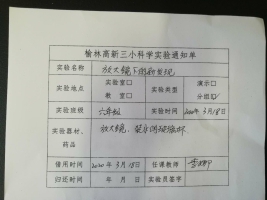 榆林高新三小科学实验通知单
实验名称 放大镜下的新发现
实验地点 实验室口 教室口 实验类型 演示口 分组
实验班级 六年级 实验时间 2020年3月18日
实验器材、药品 放大镜、
借用时间 2020年3月18日 任课教师
归还时间 年 月 日 实验员签字